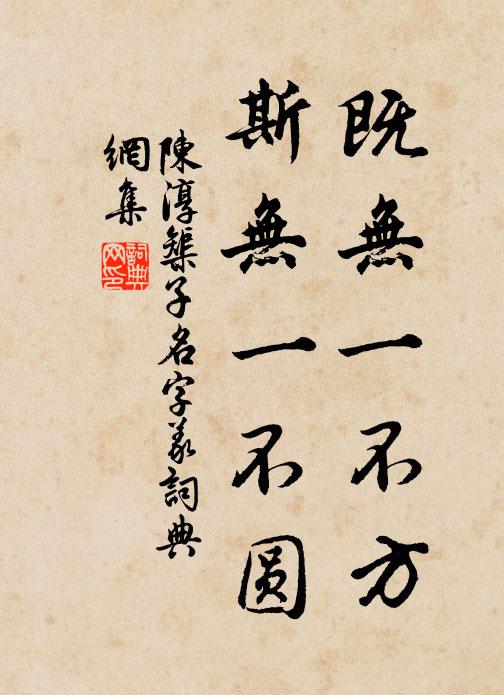 既無一不方
斯無一不圆
陳淳築子名字義詞典
網集
詞典
网印